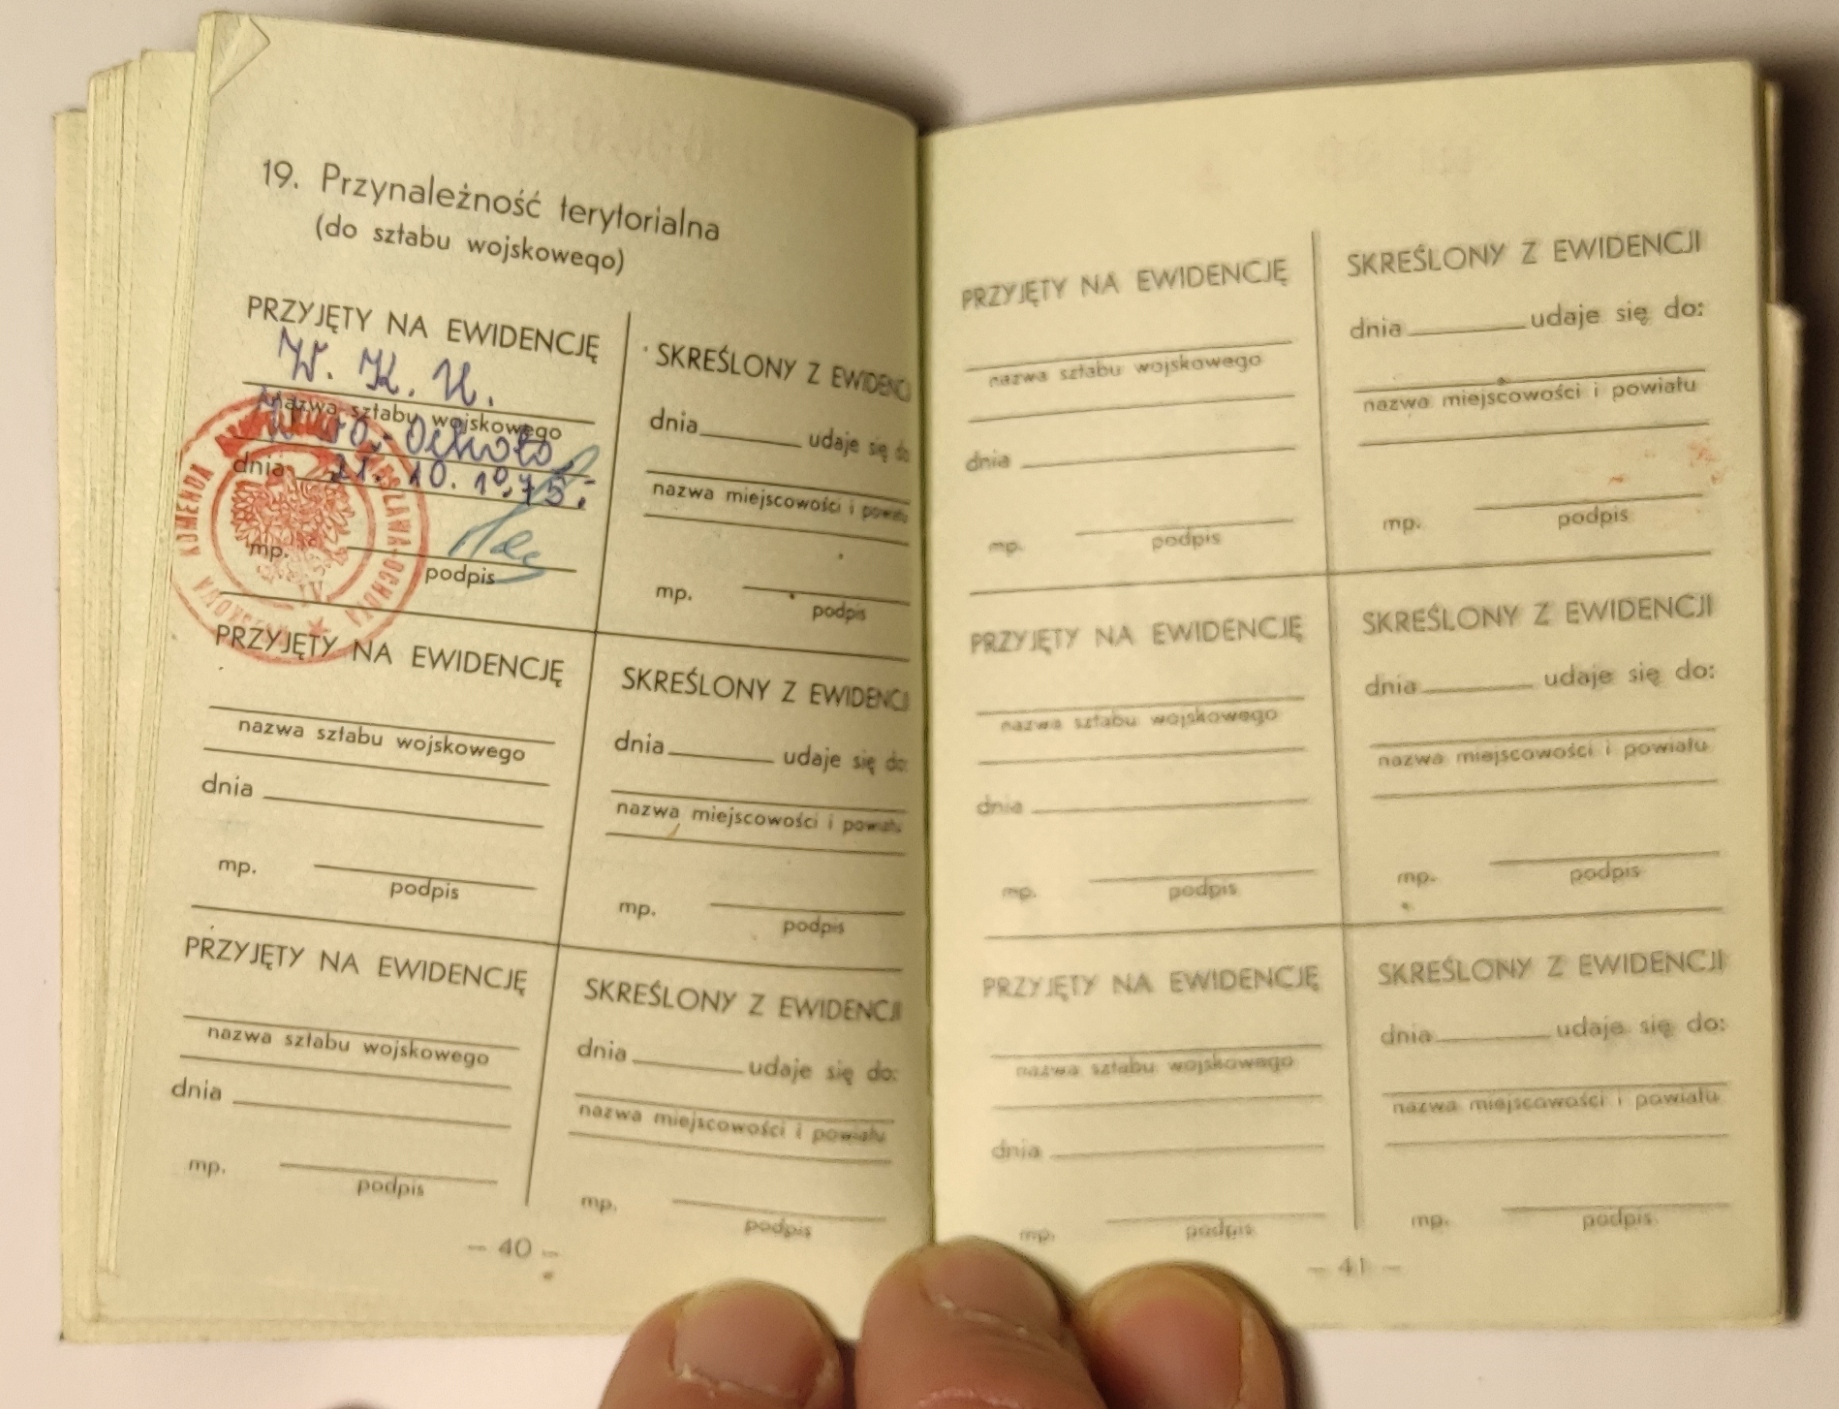 19. Przynależność terytorialna
(do sztabu wojskowego)
PRZYJĘTY NA EWIDENCJĘ
W. K. U.
nazwa sztabu wojskowego
dnia 21. 10. 1975.
mp.
podpis
KOMENDA
SKREŚLONY Z EWIDENCJI
dnia udaje się do
nazwa miejscowości i powiatu
mp.
podpis
PRZYJĘTY NA EWIDENCJĘ
nazwa sztabu wojskowego
dnia
mp.
podpis
SKREŚLONY Z EWIDENCJI
dnia udaje się do:
nazwa miejscowości i powiatu
mp.
podpis
PRZYJĘTY NA EWIDENCJĘ
nazwa sztabu wojskowego
dnia
mp.
podpis
SKREŚLONY Z EWIDENCJI
dnia udaje się do:
nazwa miejscowości i powiatu
mp.
podpis
– 40 –
PRZYJĘTY NA EWIDENCJĘ
nazwa sztabu wojskowego
dnia
mp.
podpis
SKREŚLONY Z EWIDENCJI
dnia udaje się do:
nazwa miejscowości i powiatu
mp.
podpis
PRZYJĘTY NA EWIDENCJĘ
nazwa sztabu wojskowego
dnia
mp.
podpis
SKREŚLONY Z EWIDENCJI
dnia udaje się do:
nazwa miejscowości i powiatu
mp.
podpis
PRZYJĘTY NA EWIDENCJĘ
nazwa sztabu wojskowego
dnia
mp.
podpis
SKREŚLONY Z EWIDENCJI
dnia udaje się do:
nazwa miejscowości i powiatu
mp.
podpis
– 41 –